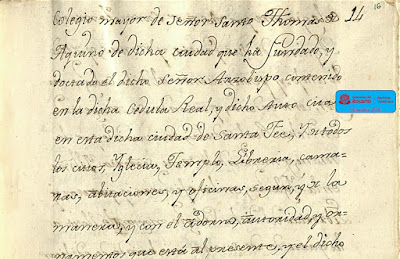 Colegio mayor de Señor Santo Thomas de 14
16
Aquino de dicha ciudad que ha fundado, y
doctado el dicho señor Arzobispo contenido
en la dicha Cedula Real, y dicho Auto citado
en esta dicha ciudad de Santa Fee, Y todos
los citios, Yglecia, Templo, Libreria, cama-
ras, abitaciones, y oficinas, segun, y a la
manera, y con el adorno, autoridad, y or-
namentos que está al presente, y el dicho